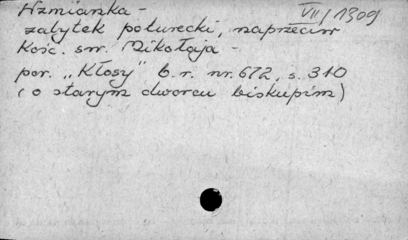 Hzmianka -
VII/1309
zabytek poturecki, naprzeciw
Kość. św. Mikołaja -
por. „Kłosy" b.r. nr. 672, s. 310
(o starym dworcu biskupim)